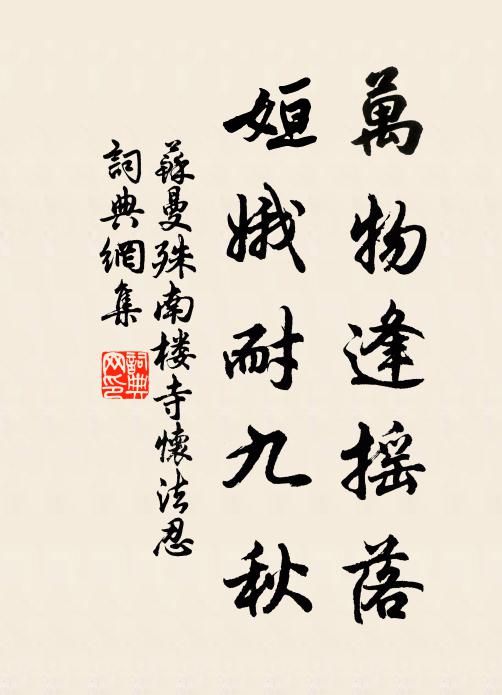 萬物逢摇落
姮娥耐九秋
蘇曼殊南楼寺懷法忍
詞典網集
詞典网印